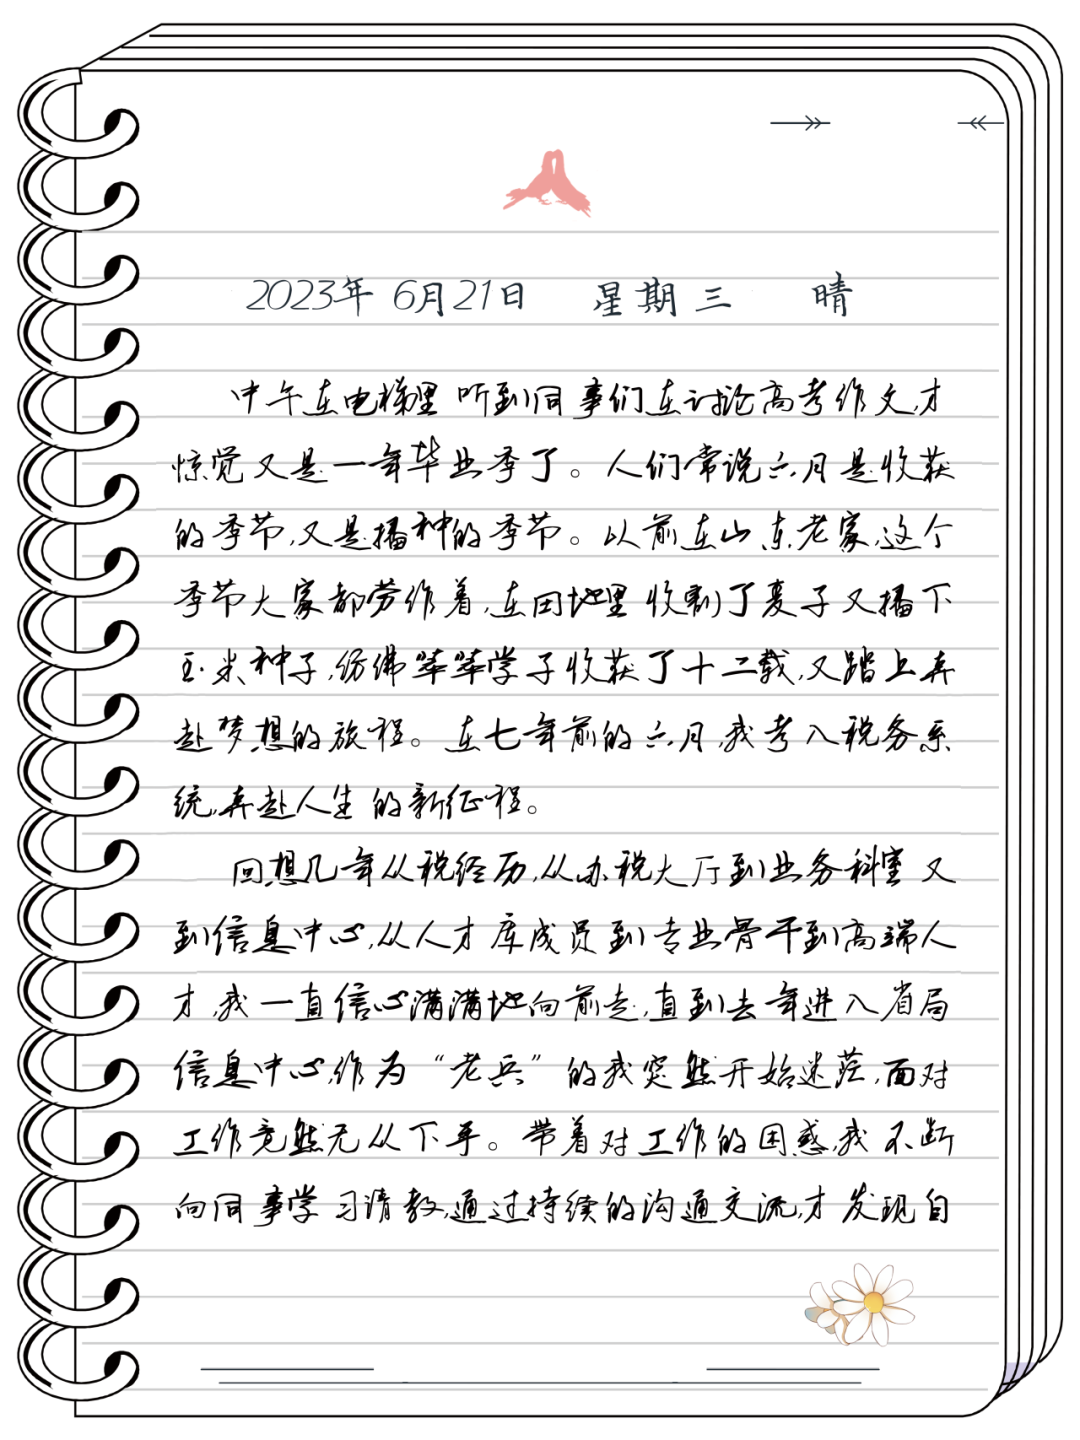 2023年 6月21日 星期三 晴
中午在电梯里听到同事们在讨论高考作文,才
惊觉又是一年毕业季了。人们常说六月是收获
的季节,又是播种的季节。以前在山东老家,这个
季节大家都劳作着,在田地里收割了麦子又播下
玉米种子,仿佛莘莘学子收获了十二载,又踏上奔
赴梦想的旅程。在七年前的六月,我考入税务系
统,奔赴人生的新征程。
回想几年从税经历,从办税大厅到业务科室又
到信息中心,从人才库成员到专业骨干到高端人
才,我一直信心满满地向前走,直到去年进入省局
信息中心,作为“老兵”的我突然开始迷茫,面对
工作竟然无从下手。带着对工作的困惑,我不断
向同事学习请教,通过持续的沟通交流,才发现自